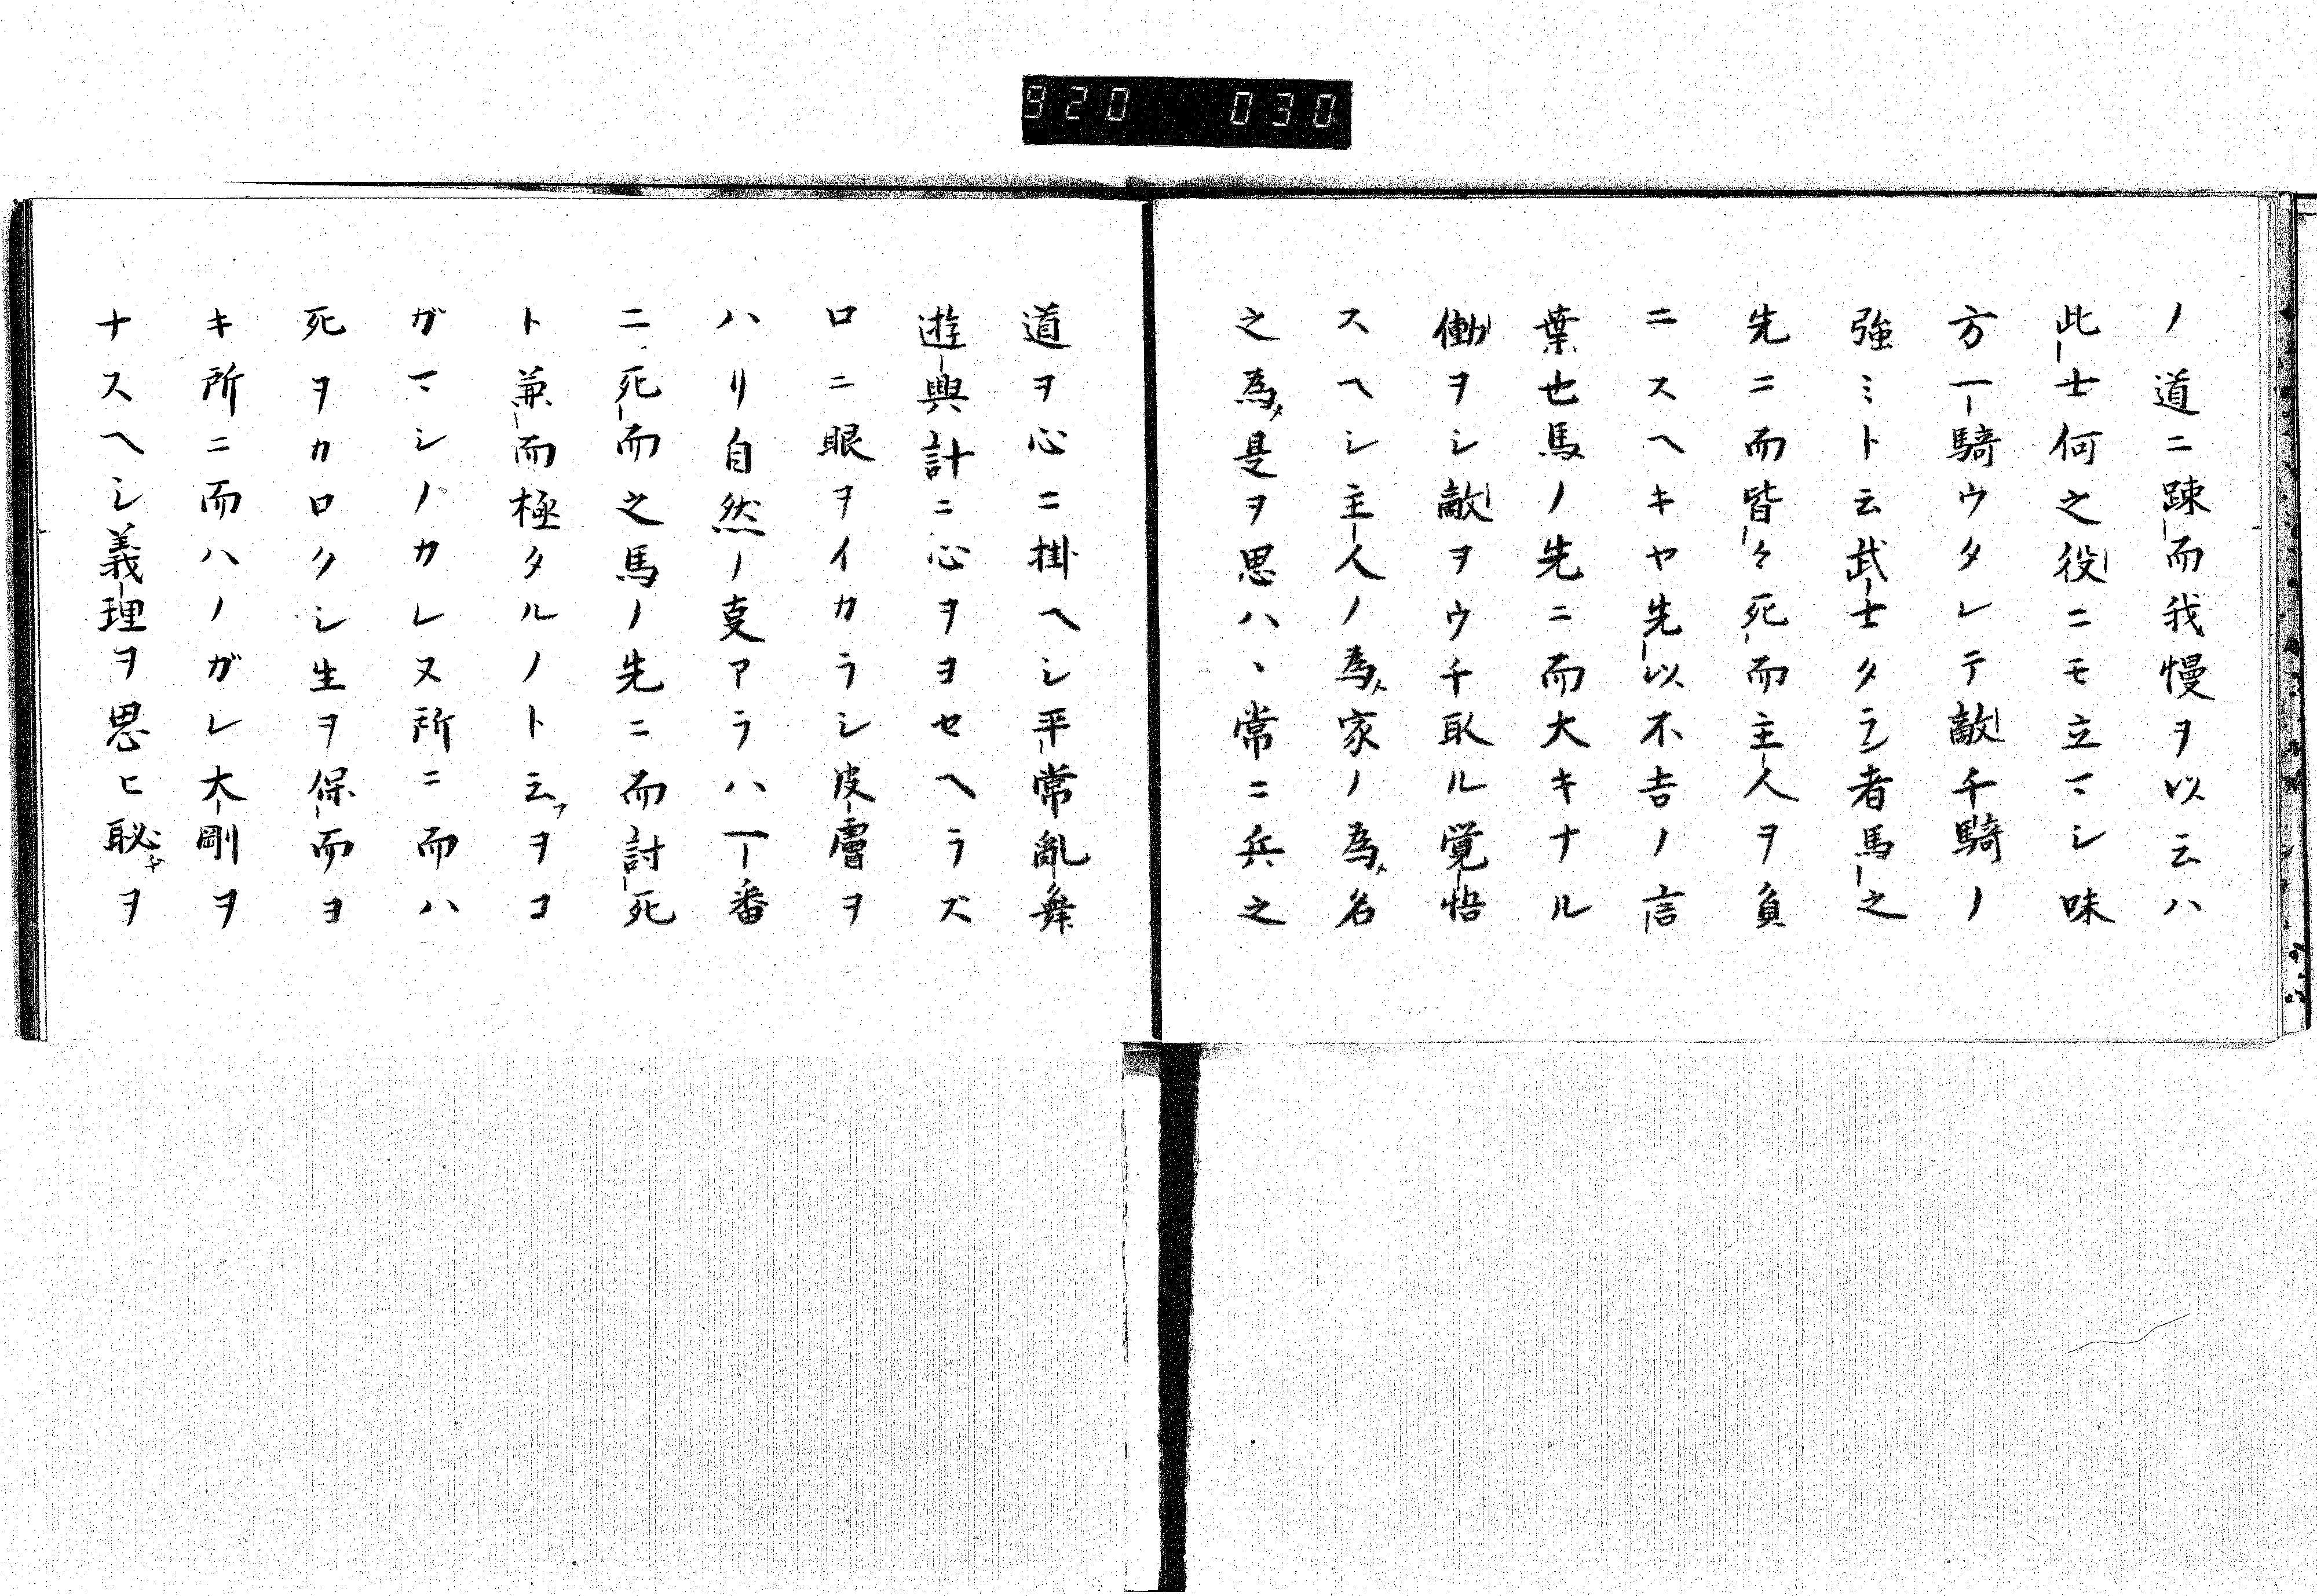 920 030
ノ道ニ踈而我慢ヲ以云ハ
此士何之役ニモ立マシ味
方一騎ウタレテ敵千騎ノ
強ミト云武士タラン者馬之
先ニ而皆々死而主人ヲ負
ニスヘキヤ先以不吉ノ言
葉也馬ノ先ニ而大キナル
働ヲシ敵ヲウチ取ル覚悟
スヘシ主人ノ為メ家ノ為メ名
之為メ是ヲ思ハヽ常ニ兵之
道ヲ心ニ掛ヘシ平常亂舞
遊興計ニ心ヲヨセヘラズ
ロニ眼ヲイカラシ皮膚ヲ
ハリ自然ノ支アラハ一番
ニ死而之馬ノ先ニ而討死
ト兼而極タルノト云フヲコ
ガマシノカレヌ所ニ而ハ
死ヲカロクシ生ヲ保而ヨ
キ所ニ而ハノガレ大剛ヲ
ナスヘシ義理ヲ思ヒ恥ヲ